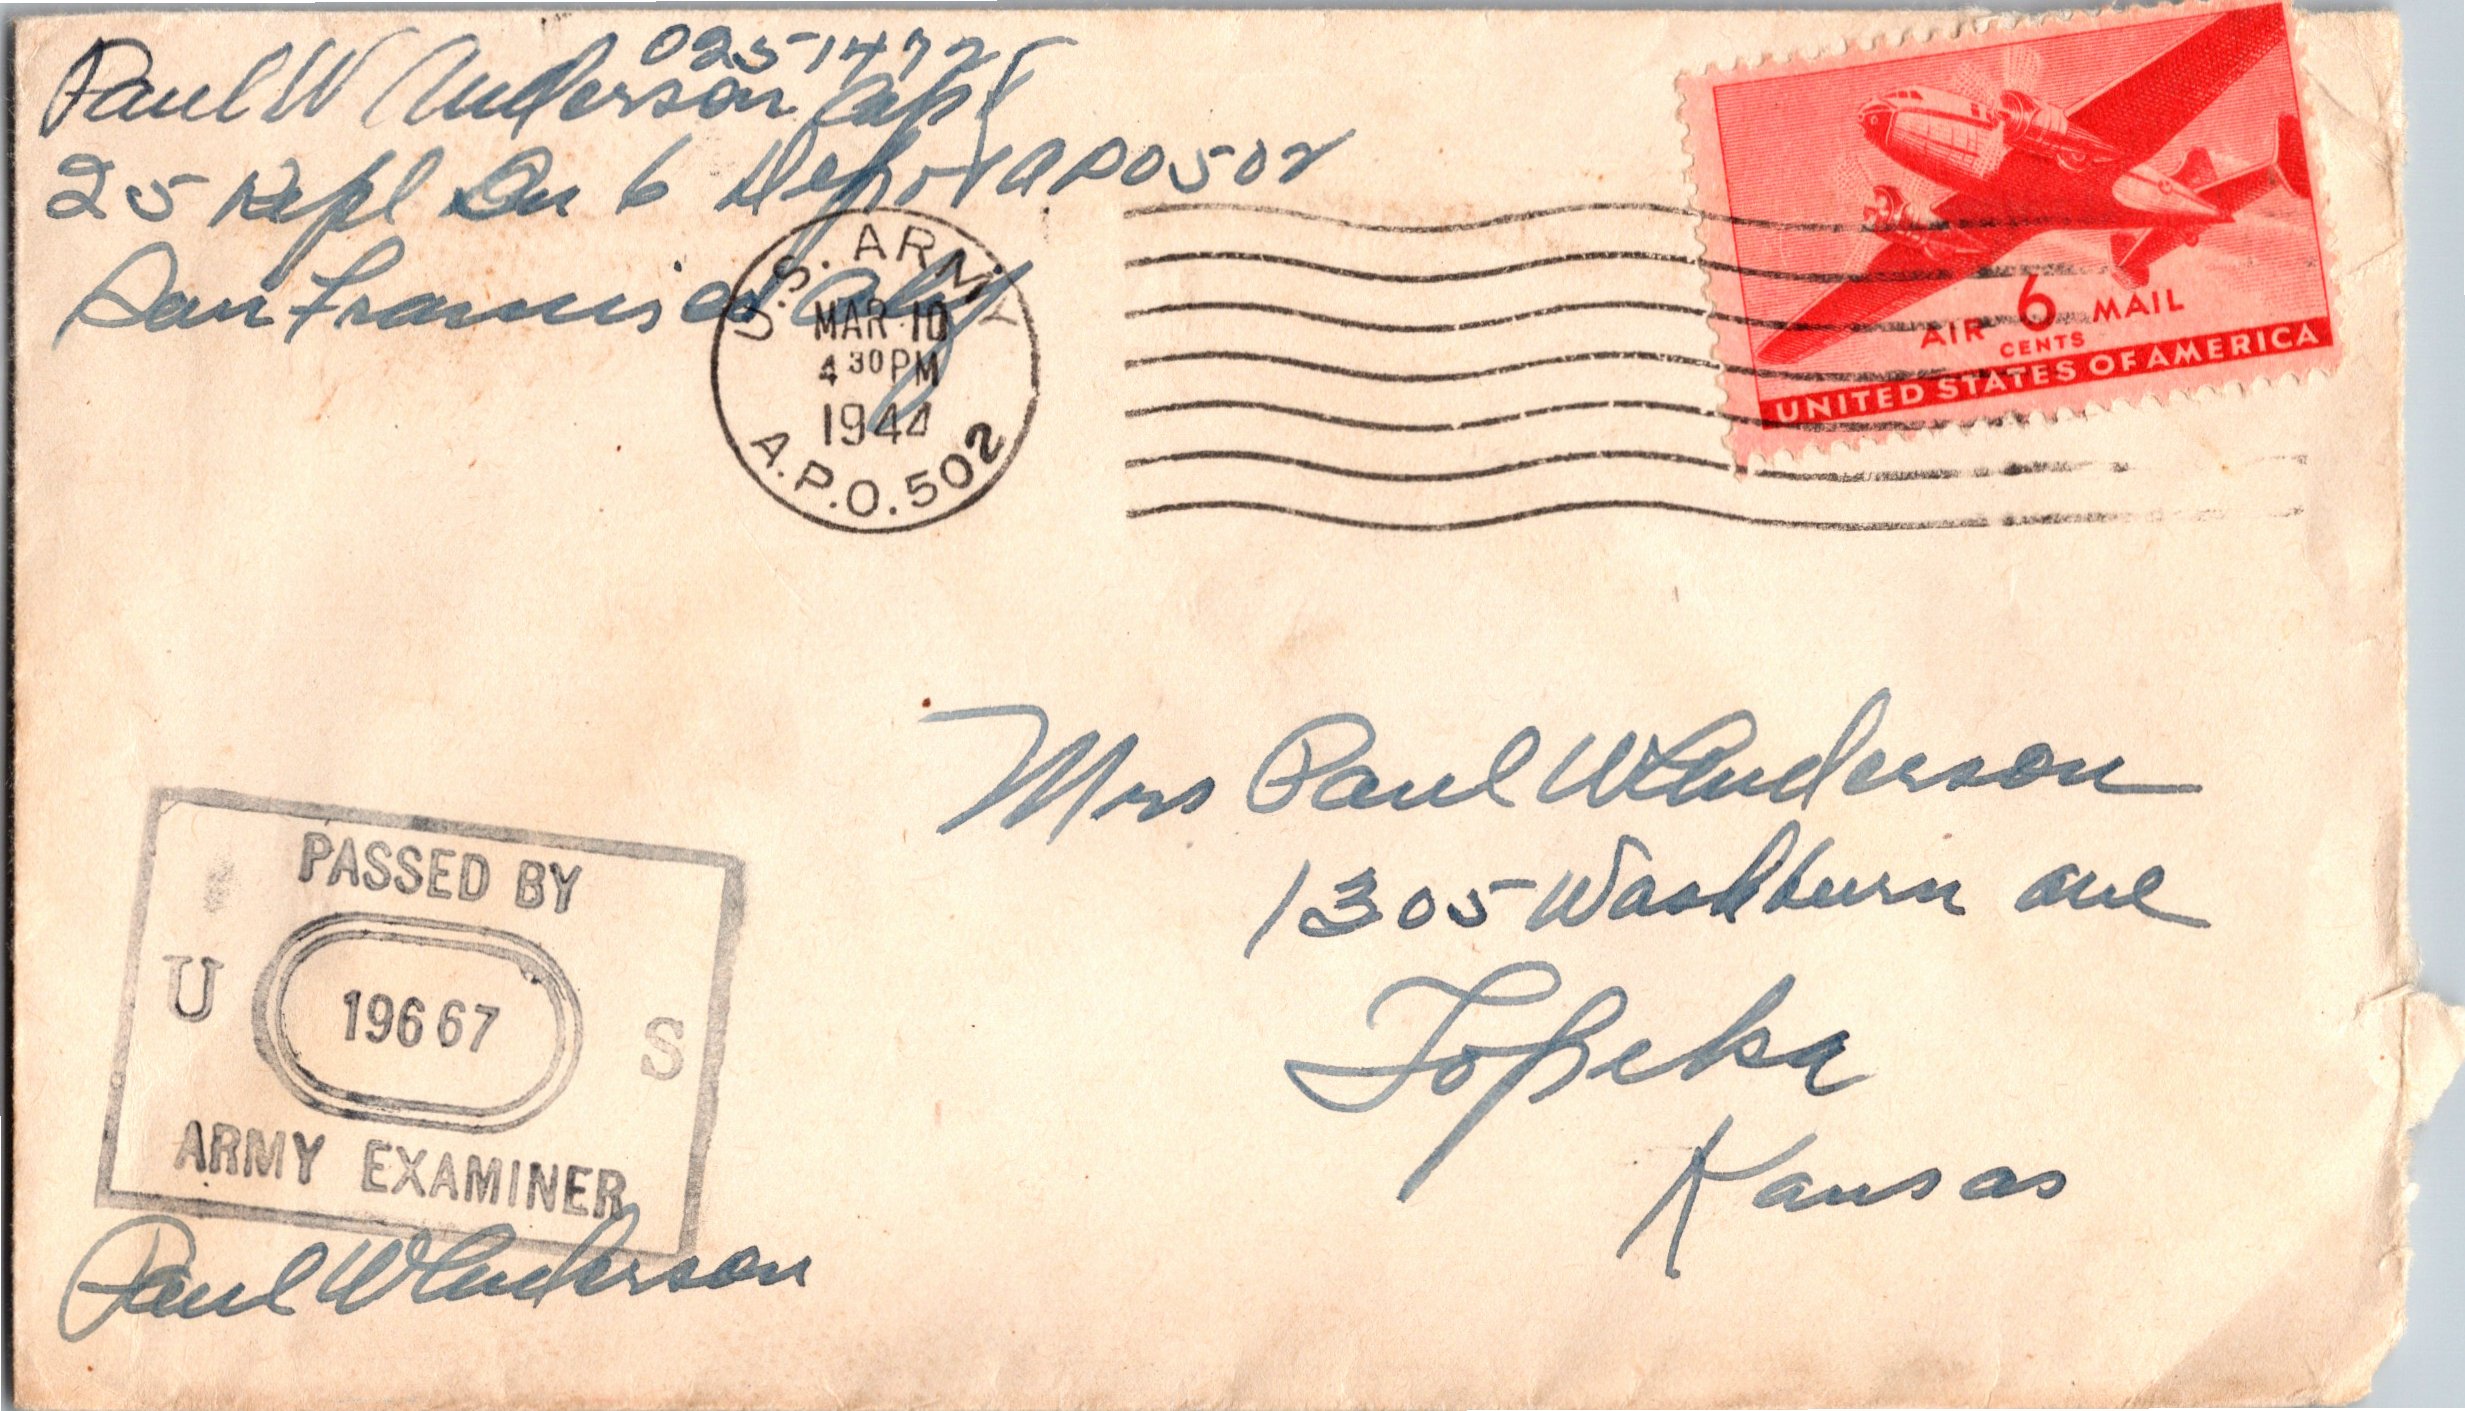 0251472
Paul W Anderson Capt
25 Repl Bn 6 Depot APO 502
San Francisco Calif
U.S. ARMY
MAR 10
4 30 PM
1944
A.P.O. 502
AIR 6 MAIL
CENTS
UNITED STATES OF AMERICA
Mrs Paul W Anderson
1305 Washburn ave
Topeka
Kansas
PASSED BY
U 19667 S
ARMY EXAMINER
Paul W Anderson